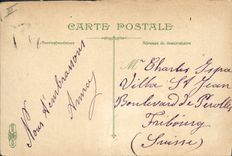 CARTE POSTALE
Correspondance
Adresse du destinataire
Nous t'embrassons
Mr Charles
Villa St Jean
Boulevard de Pérolles
Fribourg
(Suisse)